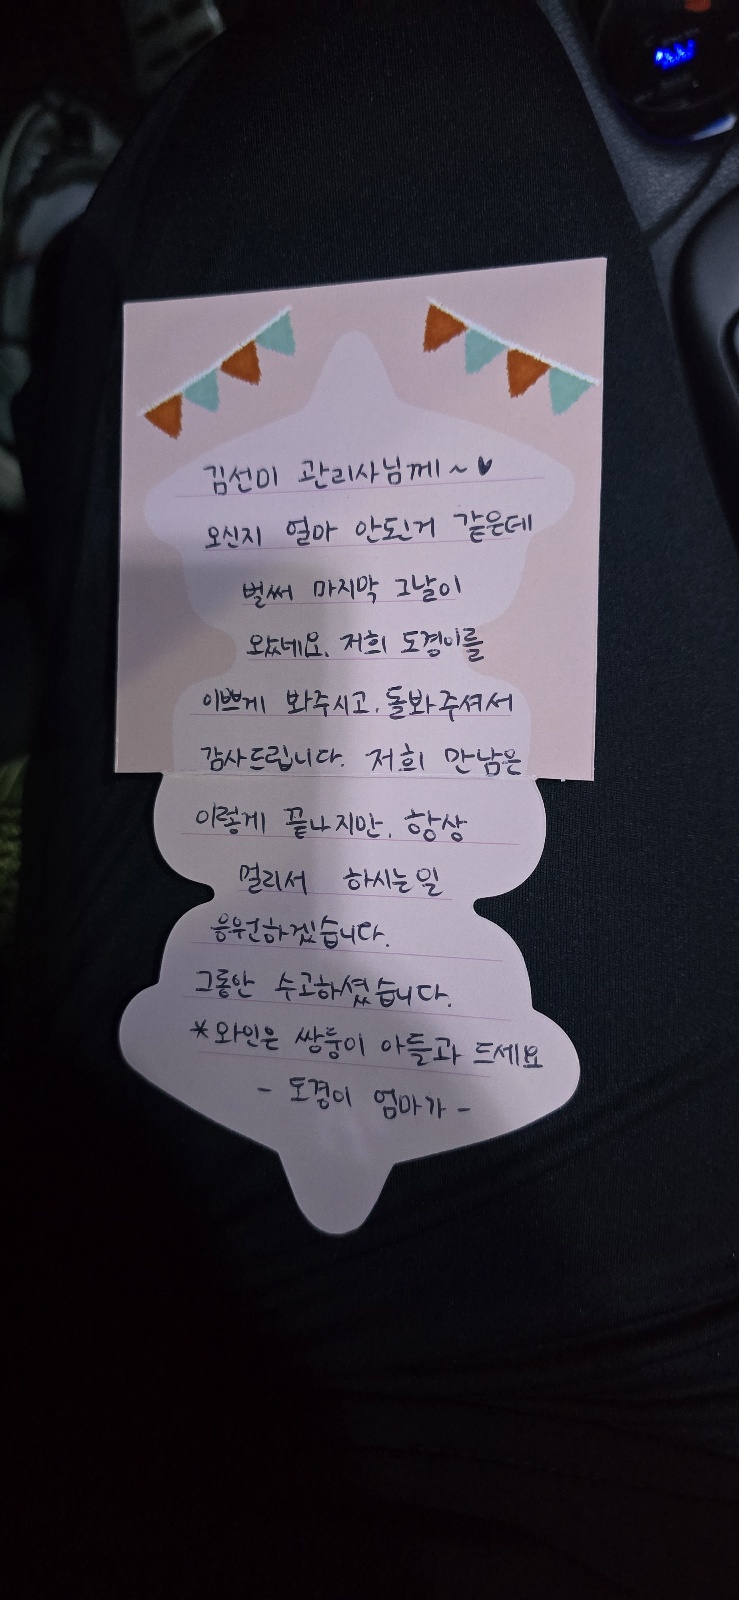 김선미 관리사님께~♥
오신지 얼마 안된거 같은데
벌써 마지막 그날이
왔네요. 저희 도경이를
이쁘게 봐주시고, 돌봐주셔서
감사드립니다. 저희 만남은
이렇게 끝나지만, 항상
멀리서 하시는일
응원하겠습니다.
그동안 수고하셨습니다.
*와인은 쌍둥이 아들과 드세요
- 도경이 엄마가 -